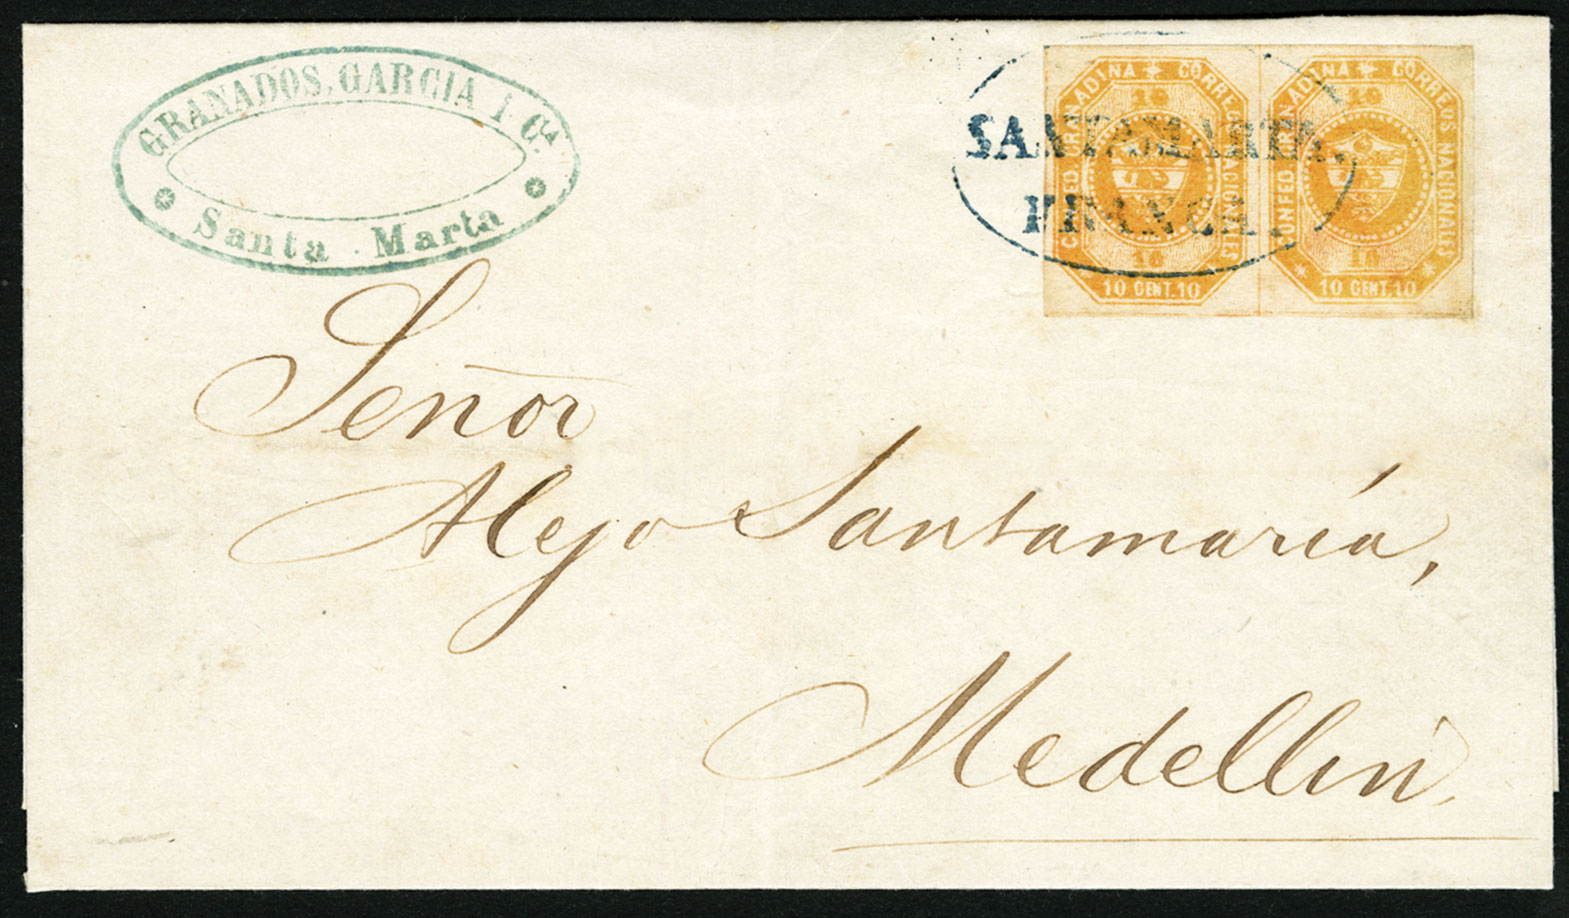 GRANADOS, GARCIA I Cª
Santa Marta
CONFED. GRANADINA CORREOS NACIONALES
10
10
10 CENT. 10
CONFED. GRANADINA CORREOS NACIONALES
10
10
10 CENT. 10
SANTAMARTA.
FRANCA.
Señor
Alejo Santamaría,
Medellin.